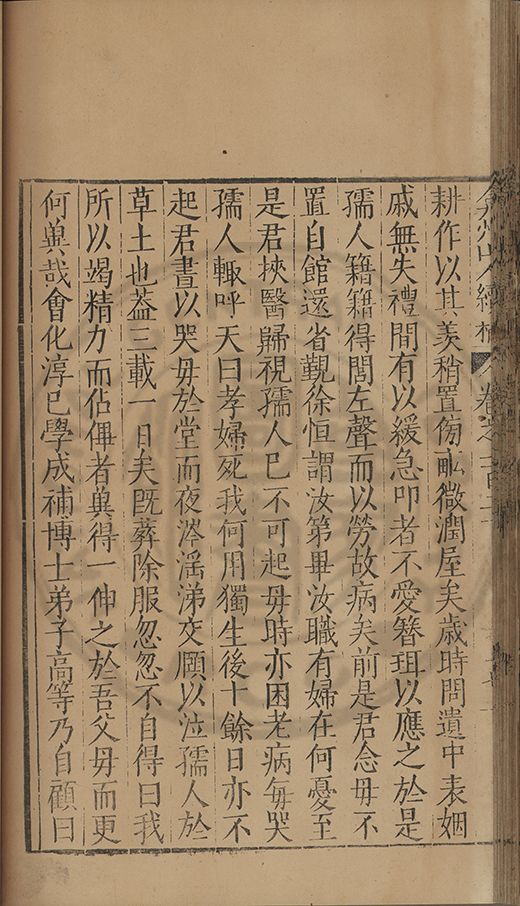 弇州山人續稿 卷之一百二十
耕作以其羨稍置傍畝微潤屋矣歲時問遺中表姻
戚無失禮間有以緩急叩者不愛簪珥以應之於是
孺人籍籍得閭左聲而以勞故病矣前是君念毋不
置自館還省覲徐恒謂汝第畢汝職有婦在何憂至
是君挾醫歸視孺人已不可起毋時亦困老病每哭
孺人輙呼天曰孝婦死我何用獨生後十餘日亦不
起君晝以哭毋於堂而夜涔滛涕交頤以泣孺人於
草土也葢三載一日矣旣葬除服忽忽不自得曰我
所以竭精力而佔俾者兾得一伸之於吾父毋而更
何兾哉會化淳巳學成補博士弟子高等乃自顧曰